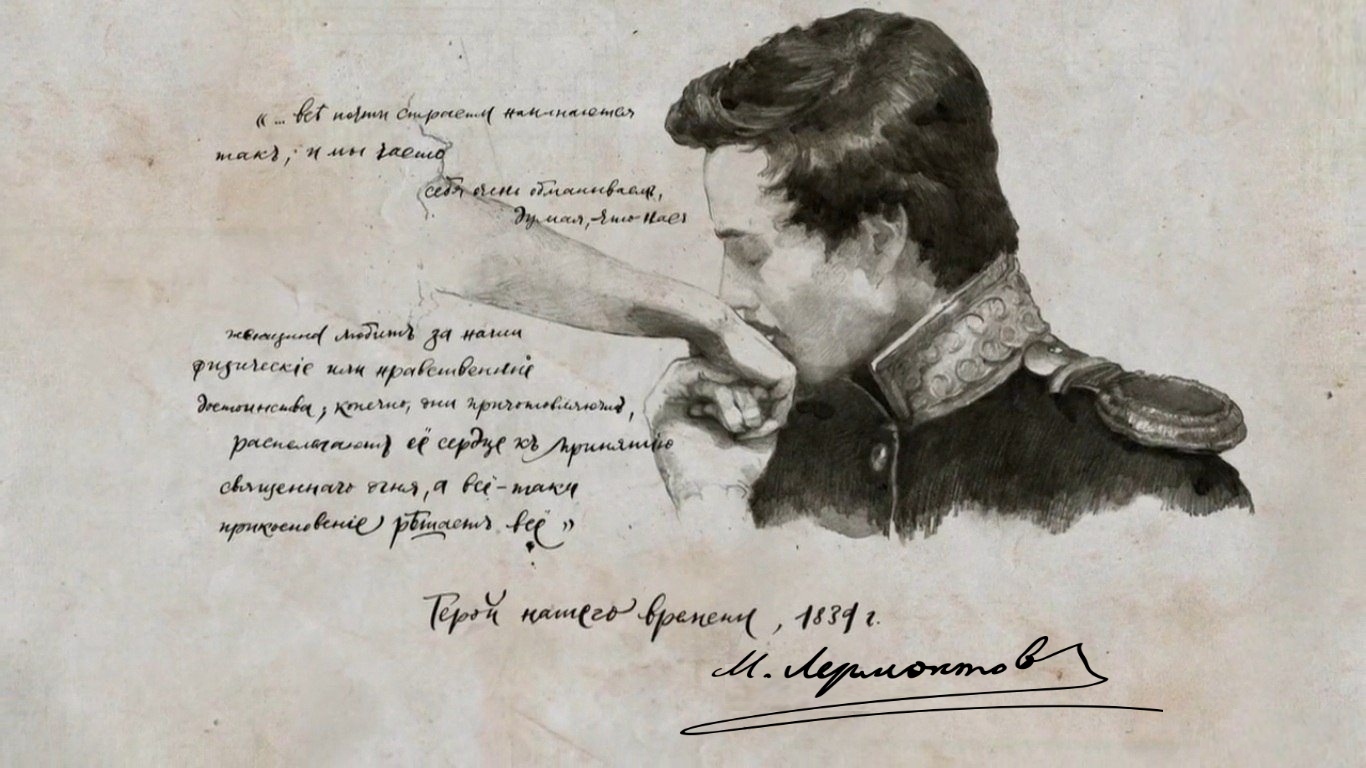 «... всѣ почти страсти начинаются
такъ, и мы часто
себя очень обманываемъ,
думая, что насъ
женщина любитъ за наши
физическіе или нравственныіе
достоинства; конечно, они приготовляютъ,
располагаютъ её сердце къ принятію
священнаго огня, а всё-таки
прикосновеніе рѣшаетъ всё»
Герой нашего времени, 1839 г.
М. Лермонтовъ